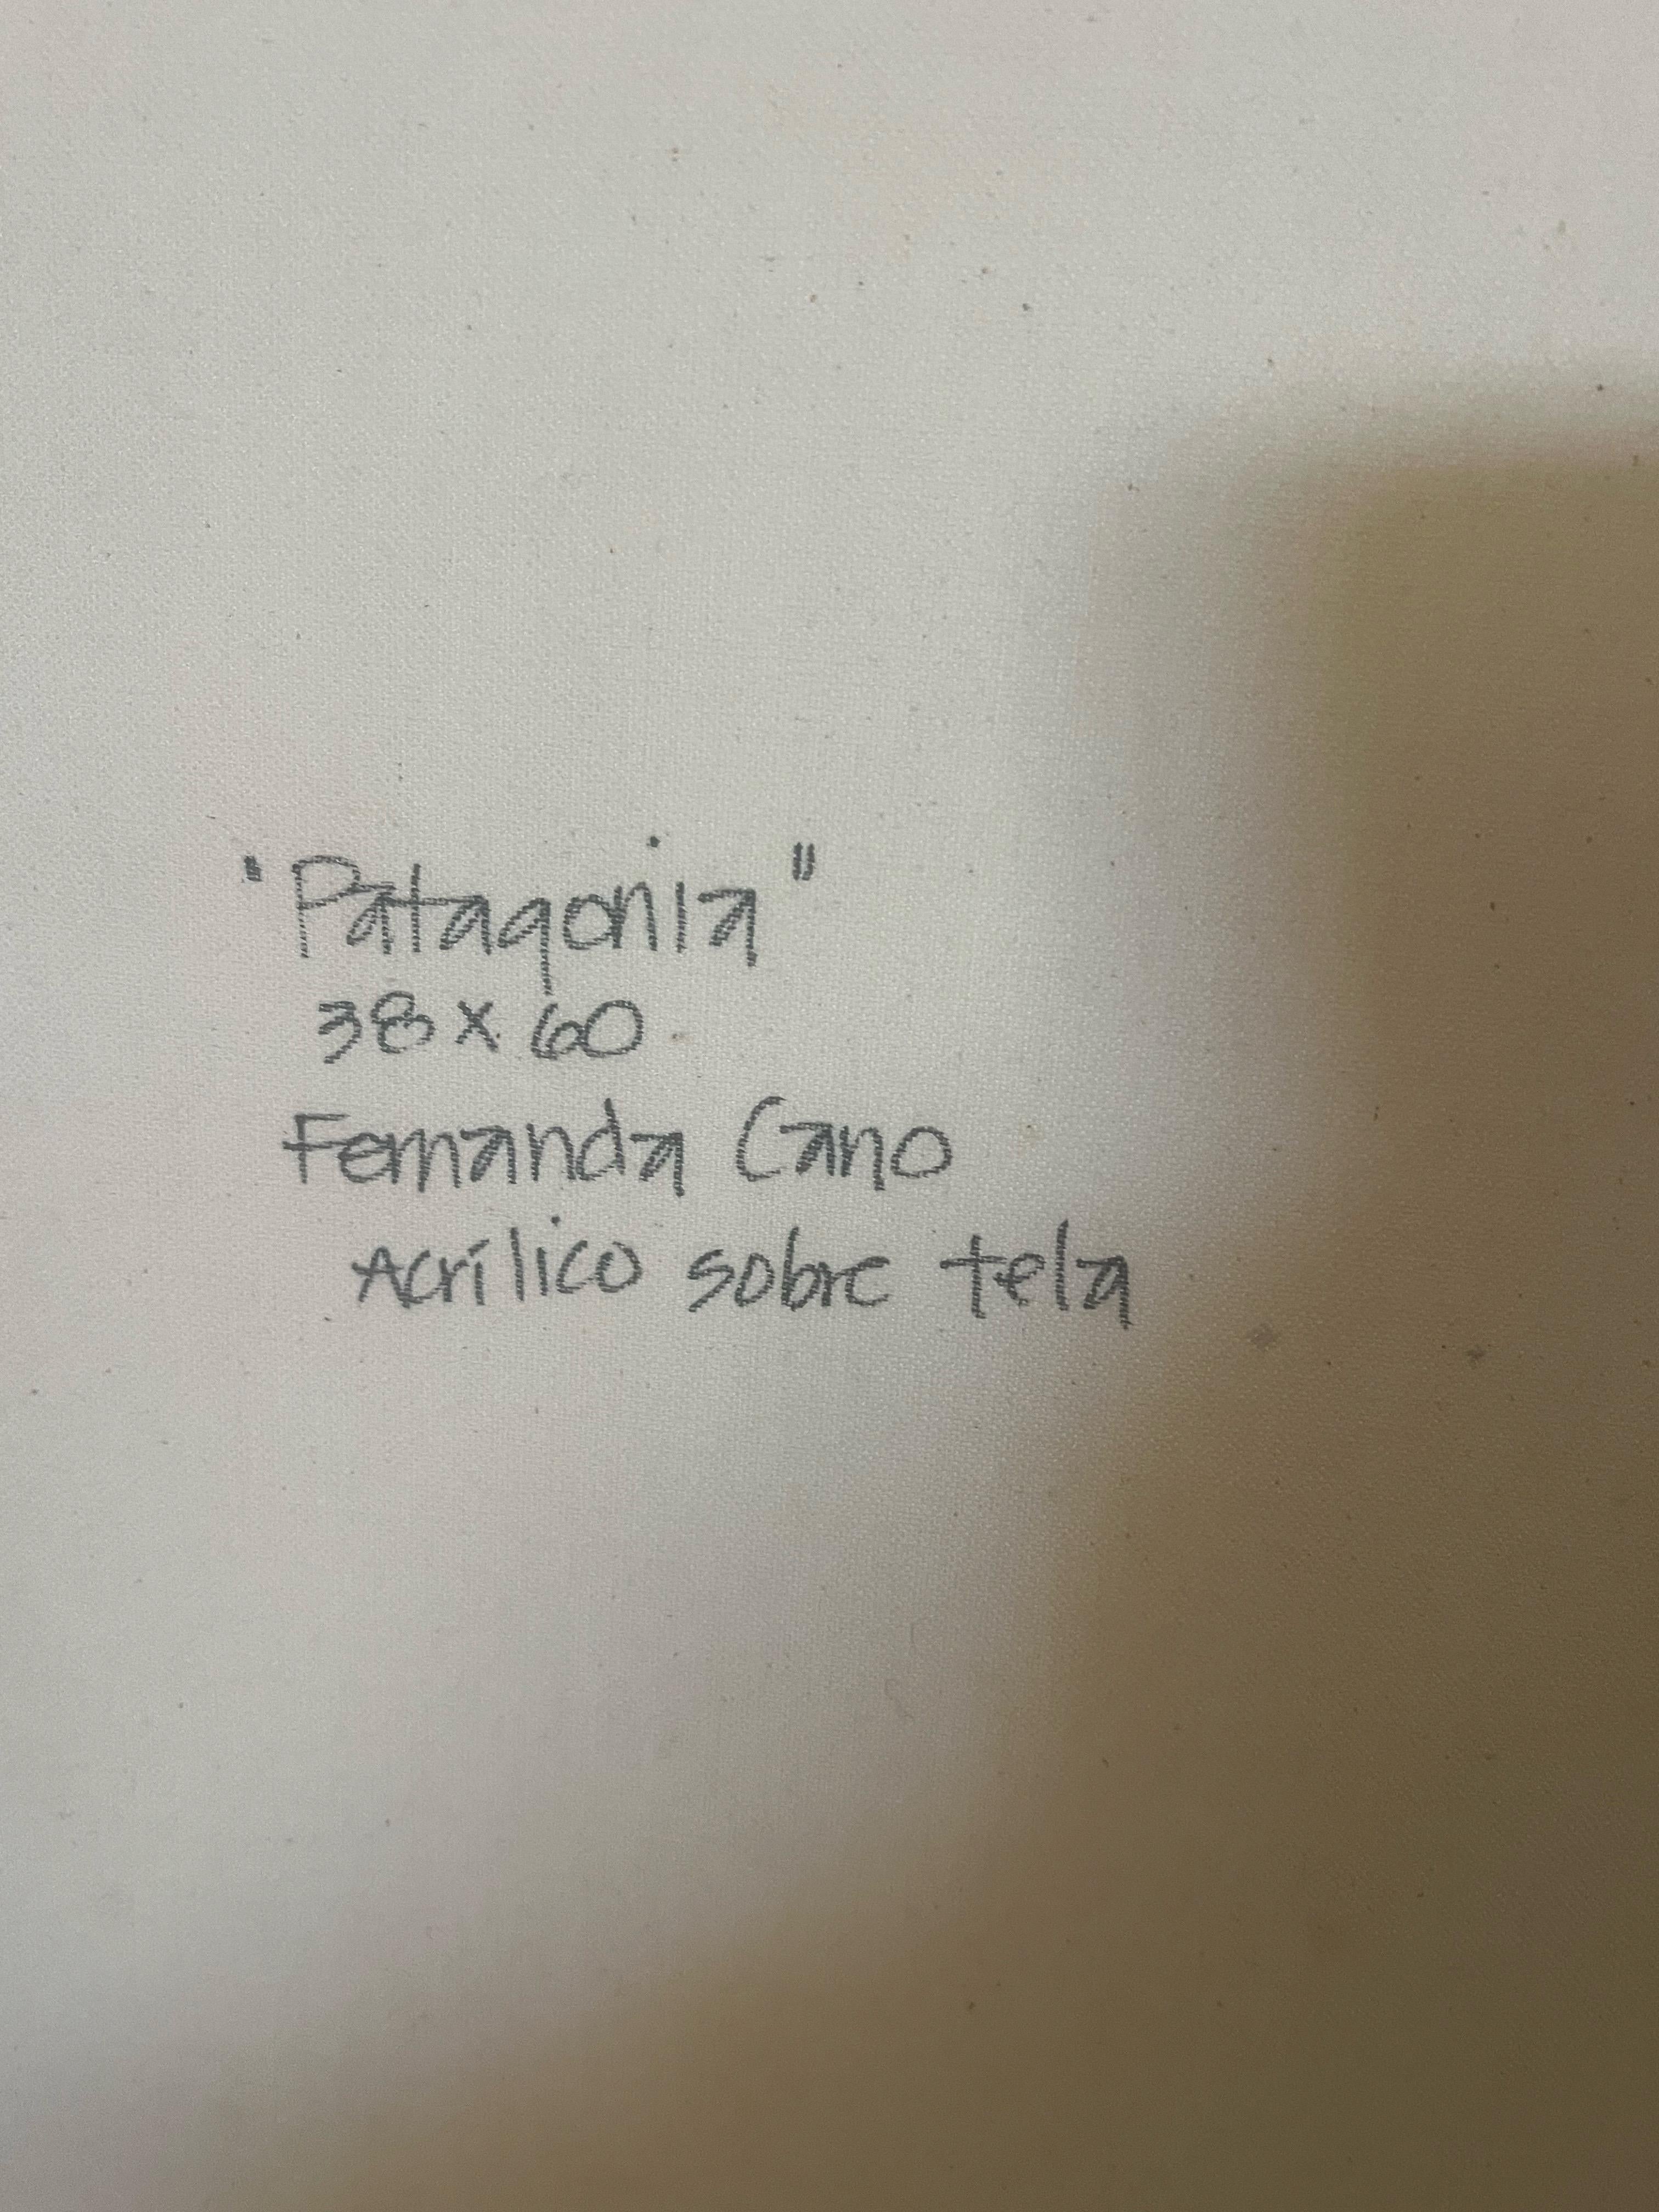 "Patagonia"
38 x 60
Fernanda Cano
Acrílico sobre tela